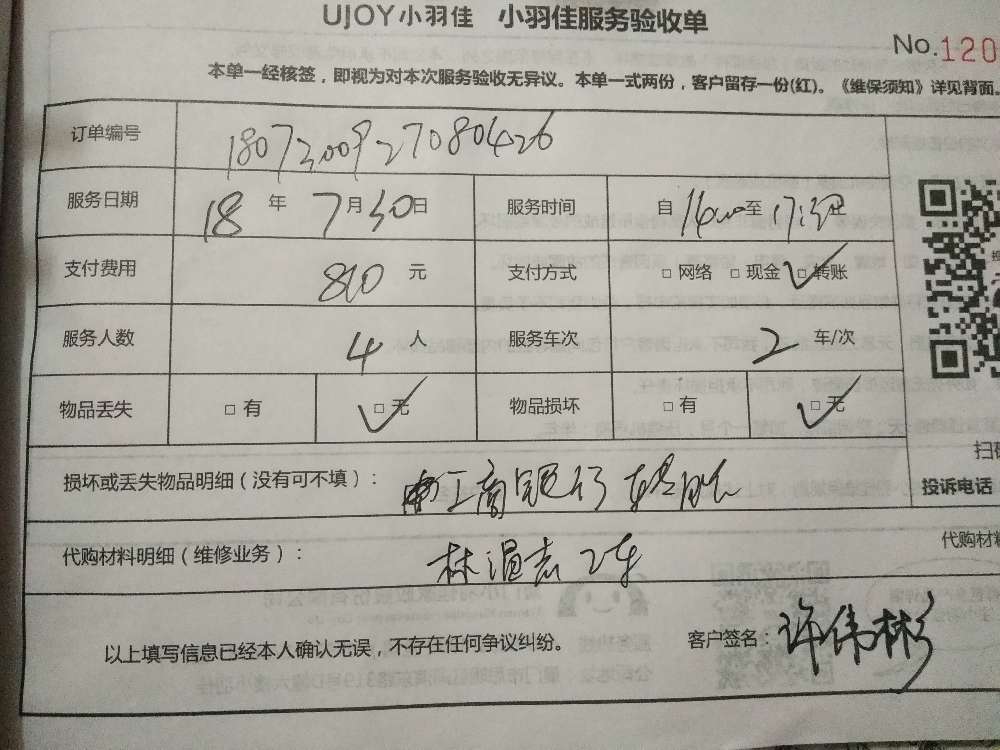 UJOY小羽佳 小羽佳服务验收单
No.120
本单一经核签，即视为对本次服务验收无异议。本单一式两份，客户留存一份(红)。《维保须知》详见背面。
订单编号 1807300927080426
服务日期 18 年 7 月 30 日 服务时间 自 至
支付费用 800 元 支付方式 □ 网络 □ 现金 □ 转账
服务人数 4 人 服务车次 2 车/次
物品丢失 □ 有 □ 无 物品损坏 □ 有 □ 无
扫码
损坏或丢失物品明细（没有可不填）： 工商
投诉电话
代购材料明细（维修业务）： 林温志 2车
代购材料
以上填写信息已经本人确认无误，不存在任何争议纠纷。 客户签名： 许伟彬